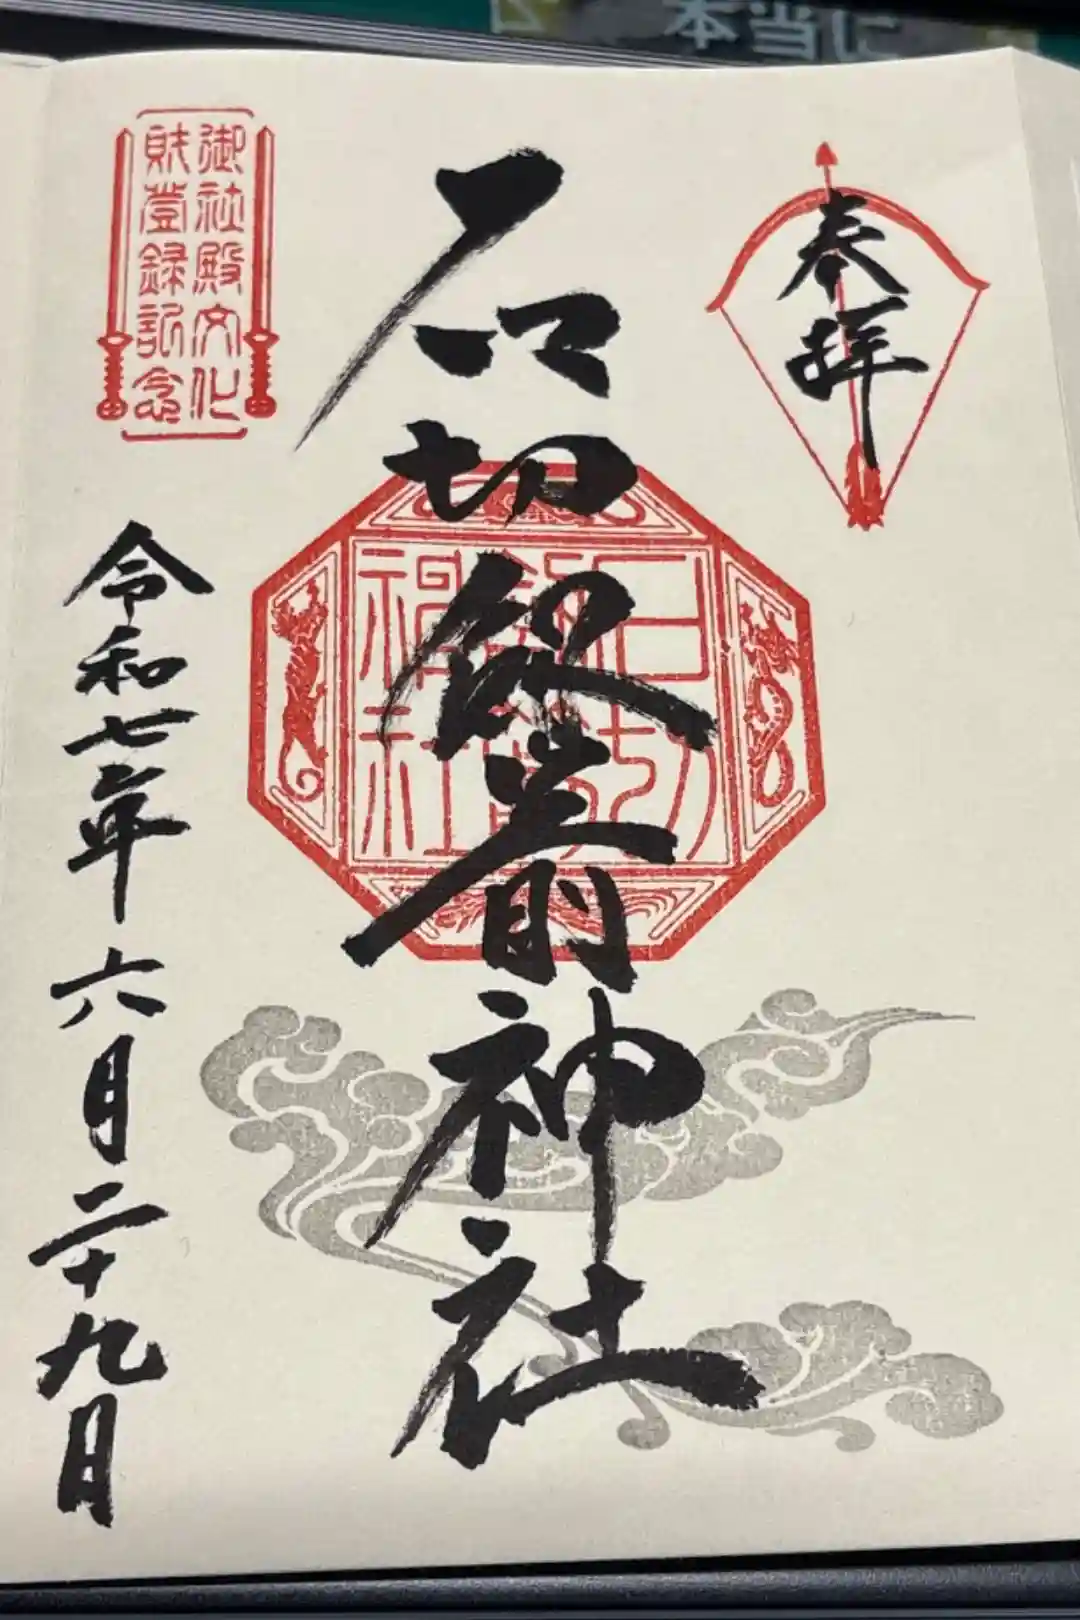 奉拝
石切劔箭神社
石切劔箭神社
御社殿文化
財登録記念
令和七年六月二十九日